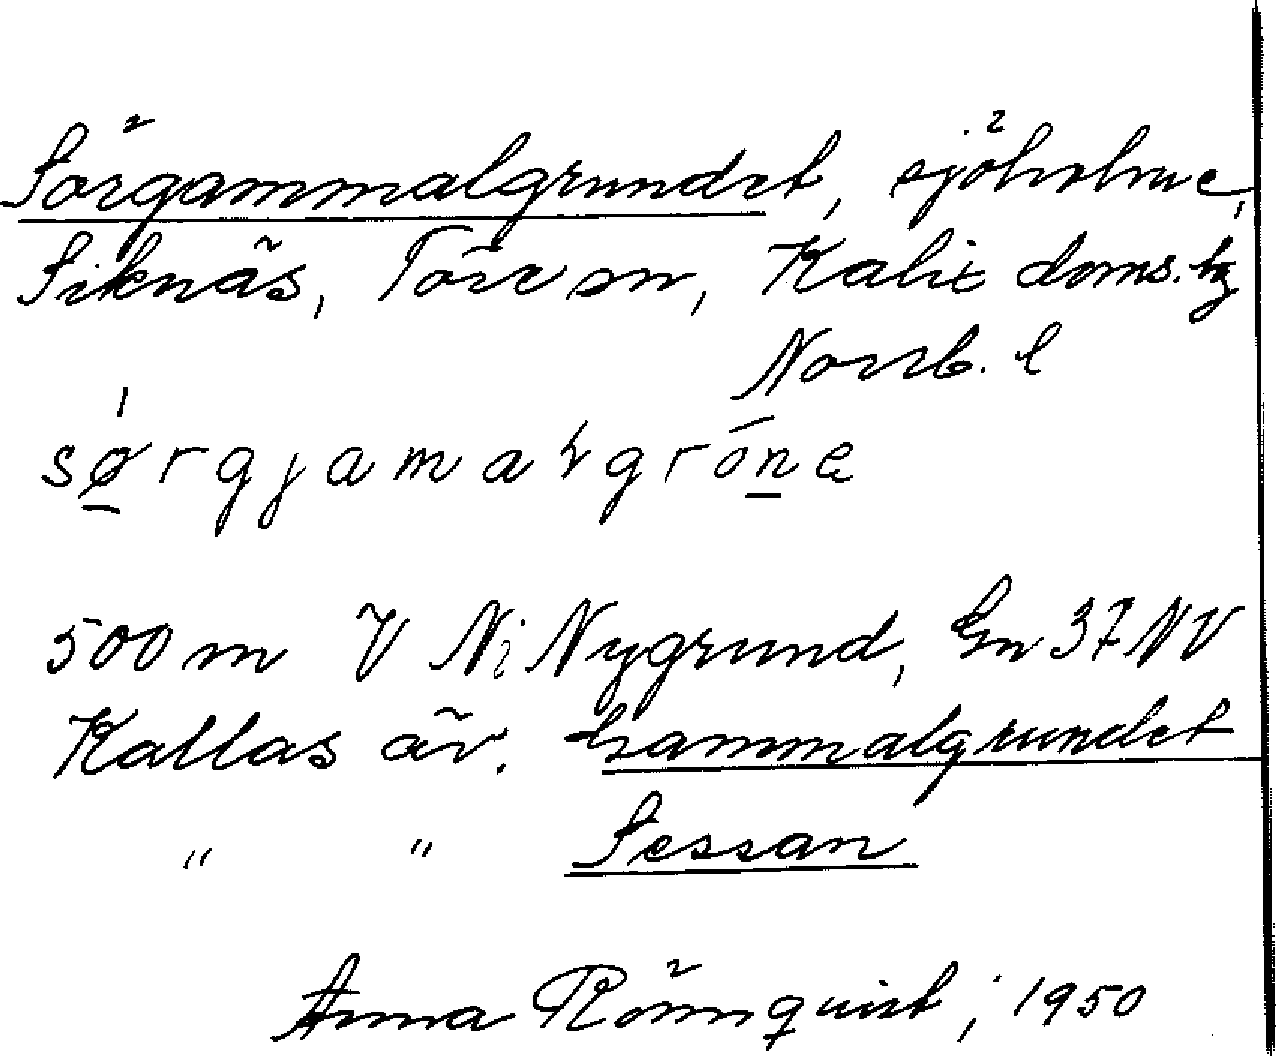 Sörgammalgrundet, sjöholme,
Siknäs, Töre sn, Kalix doms. hg
Norrb. l
sø̱rgjamaɽgróṉe
500 m V N; Nygrund, Gn 37 NV
Kallas äv. Gammalgrundet
" " Sessan
Anna Rönnquist, 1950